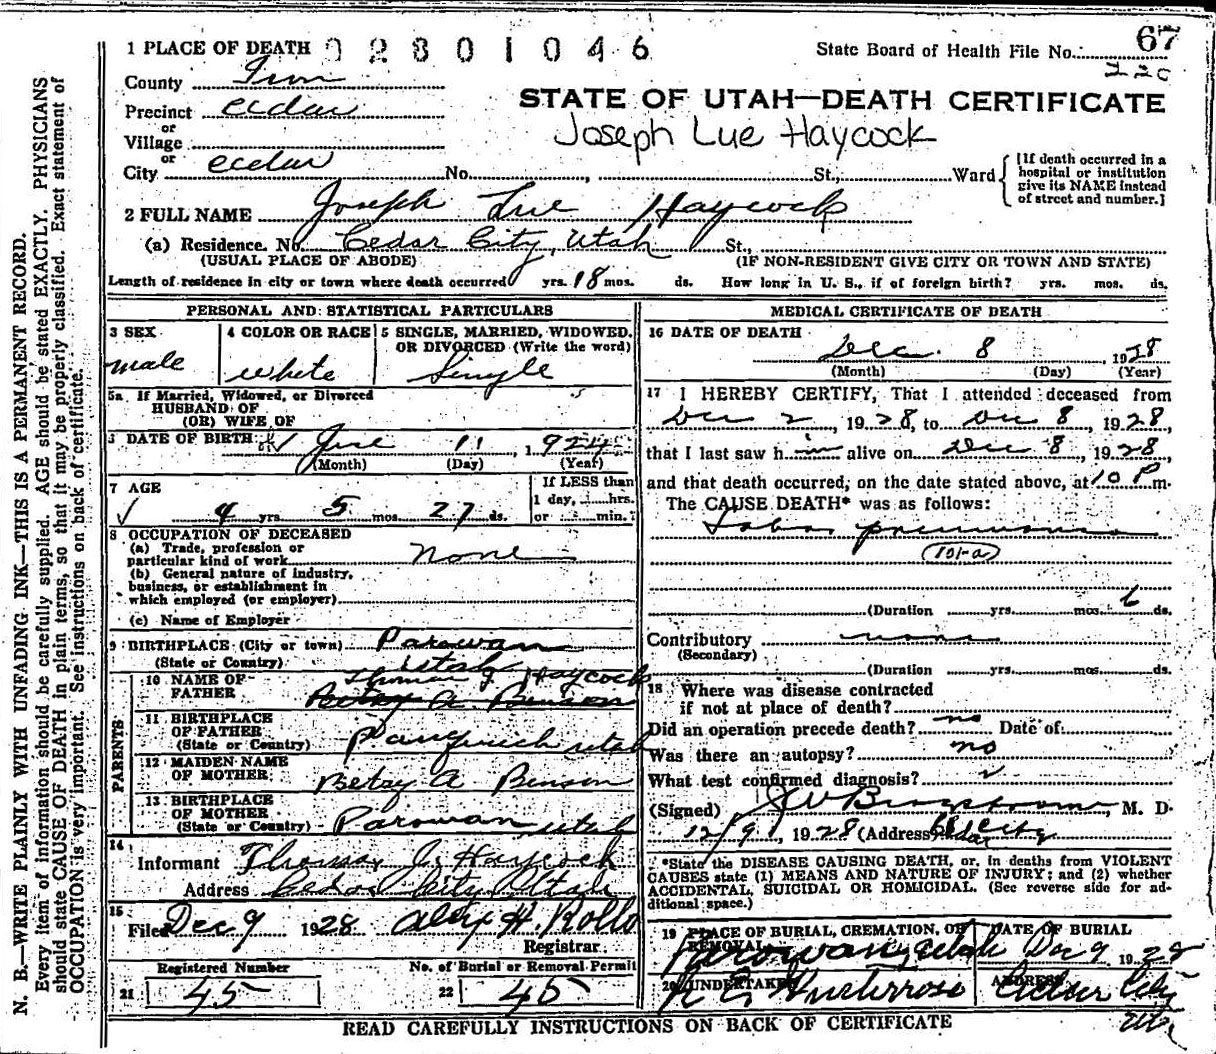 1 PLACE OF DEATH 02801046 State Board of Health File No. 67
220
County Iron
STATE OF UTAH—DEATH CERTIFICATE
Precinct Cedar
Joseph Lue Haycock
or
Village
or
City Cedar No. , St., Ward
[If death occurred in a
hospital or institution
give its NAME instead
of street and number.]
2 FULL NAME Joseph Lue Haycock
(a) Residence. No. Cedar City, Utah St.,
(USUAL PLACE OF ABODE) (IF NON-RESIDENT GIVE CITY OR TOWN AND STATE)
Length of residence in city or town where death occurred yrs. 18 mos. ds. How long in U. S., if of foreign birth? yrs. mos. ds.
PERSONAL AND STATISTICAL PARTICULARS
3 SEX 4 COLOR OR RACE 5 SINGLE, MARRIED, WIDOWED,
OR DIVORCED (Write the word)
male white Single
5a If Married, Widowed, or Divorced
HUSBAND OF
(OR) WIFE OF
6 DATE OF BIRTH June 11, 1924
(Month) (Day) (Year)
7 AGE If LESS than
1 day, hrs.
4 yrs. 5 mos. 27 ds. or min.
8 OCCUPATION OF DECEASED
(a) Trade, profession or
particular kind of work none
(b) General nature of industry,
business, or establishment in
which employed (or employer)
(c) Name of Employer
9 BIRTHPLACE (City or town) Parowan
(State or Country) Utah
PARENTS
10 NAME OF Thomas J Haycock
FATHER Betsy A Benson
11 BIRTHPLACE
OF FATHER
(State or Country) Panguich utah
12 MAIDEN NAME
OF MOTHER Betsy A Benson
13 BIRTHPLACE
OF MOTHER
(State or Country) Parowan utah
14
Informant Thomas J. Haycock
Address Cedar City Utah
15
Filed Dec 9 1928 Alex H. Rollo
Registrar.
Registered Number No. of Burial or Removal Permit
21 45 22 45
MEDICAL CERTIFICATE OF DEATH
16 DATE OF DEATH
Dec. 8 1928
(Month) (Day) (Year)
17 I HEREBY CERTIFY, That I attended deceased from
Dec 2, 1928, to Dec 8, 1928,
that I last saw him alive on Dec 8, 1928,
and that death occurred, on the date stated above, at 10 P m.
The CAUSE DEATH* was as follows:
Lobar pneumonia
101-a
(Duration yrs. mos. 6 ds.
Contributory none
(Secondary)
(Duration yrs. mos. ds.
18 Where was disease contracted
if not at place of death?
Did an operation precede death? no Date of
Was there an autopsy? no
What test confirmed diagnosis?
(Signed) M. D.
12/9, 1928 (Address) Cedar City
*State the DISEASE CAUSING DEATH, or, in deaths from VIOLENT
CAUSES state (1) MEANS AND NATURE OF INJURY; and (2) whether
ACCIDENTAL, SUICIDAL OR HOMICIDAL. (See reverse side for ad-
ditional space.)
19 PLACE OF BURIAL, CREMATION, OR DATE OF BURIAL
REMOVAL Parowan, Utah Dec 9 1928
20 UNDERTAKER ADDRESS
Cedar City
Utah
READ CAREFULLY INSTRUCTIONS ON BACK OF CERTIFICATE
N. B.—WRITE PLAINLY WITH UNFADING INK—THIS IS A PERMANENT RECORD.
Every item of information should be carefully supplied. AGE should be stated EXACTLY. PHYSICIANS
should state CAUSE OF DEATH in plain terms, so that it may be properly classified. Exact statement of
OCCUPATION is very important. See instructions on back of certificate.